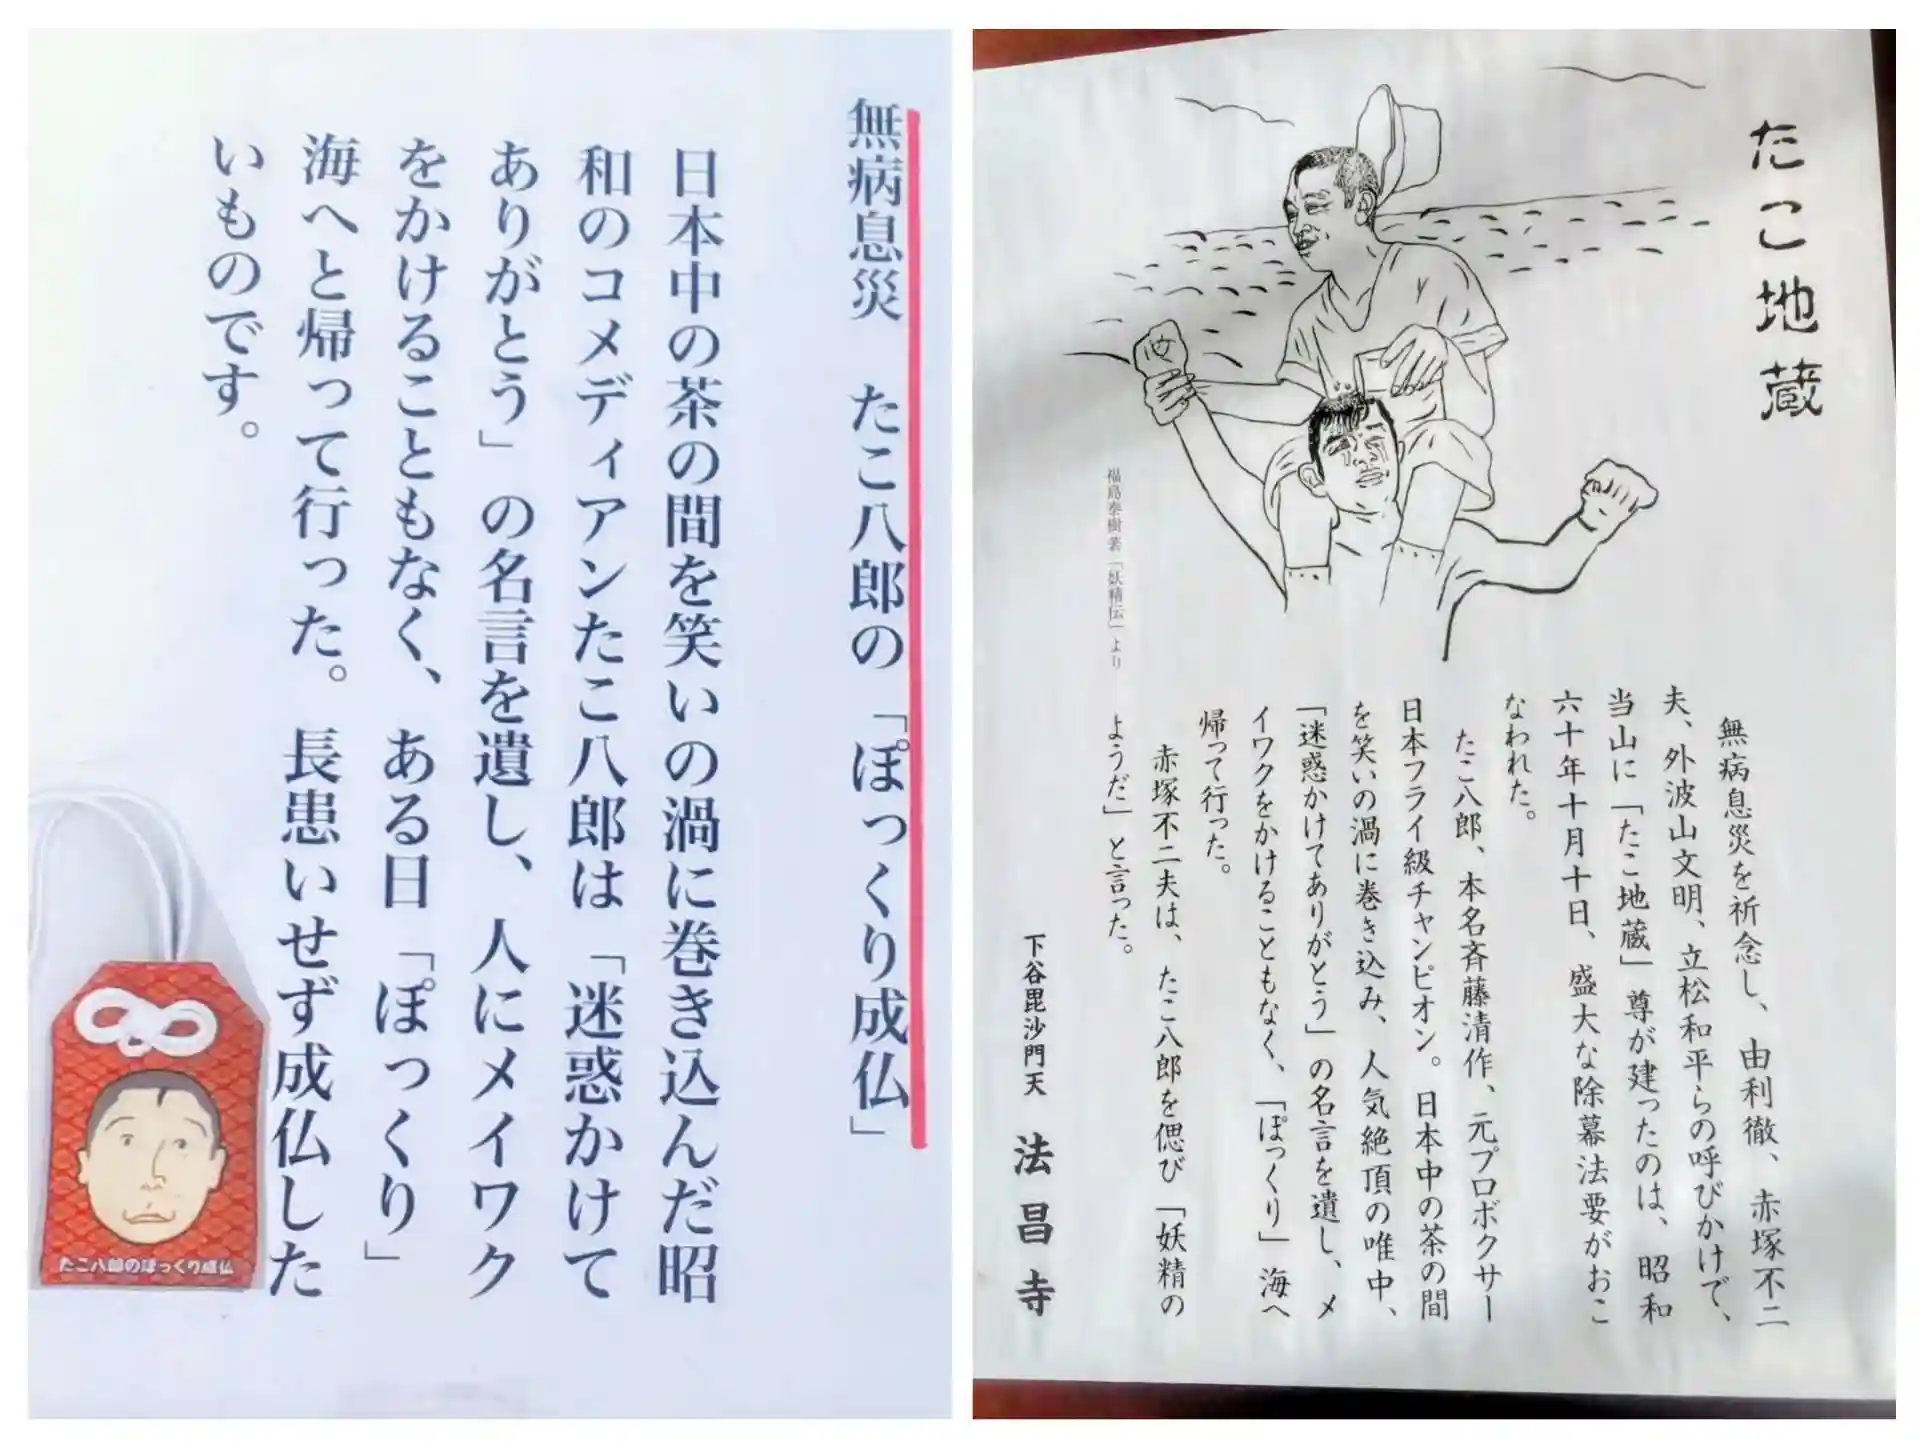 無病息災　たこ八郎の「ぽっくり成仏」
日本中の茶の間を笑いの渦に巻き込んだ昭
和のコメディアンたこ八郎は「迷惑かけて
ありがとう」の名言を遺し、人にメイワク
をかけることもなく、ある日「ぽっくり」
海へと帰って行った。長患いせず成仏した
いものです。
たこ八郎のぽっくり成仏
たこ地蔵
福島泰樹著「妖精伝」より
無病息災を祈念し、由利徹、赤塚不二
夫、外波山文明、立松和平らの呼びかけで、
当山に「たこ地蔵」尊が建ったのは、昭和
六十年十月十日、盛大な除幕法要がおこ
なわれた。
たこ八郎、本名斉藤清作、元プロボクサー
日本フライ級チャンピオン。日本中の茶の間
を笑いの渦に巻き込み、人気絶頂の唯中、
「迷惑かけてありがとう」の名言を遺し、メ
イワクをかけることもなく、「ぽっくり」海へ
帰って行った。
赤塚不二夫は、たこ八郎を偲び「妖精の
ようだ」と言った。
下谷毘沙門天　法昌寺